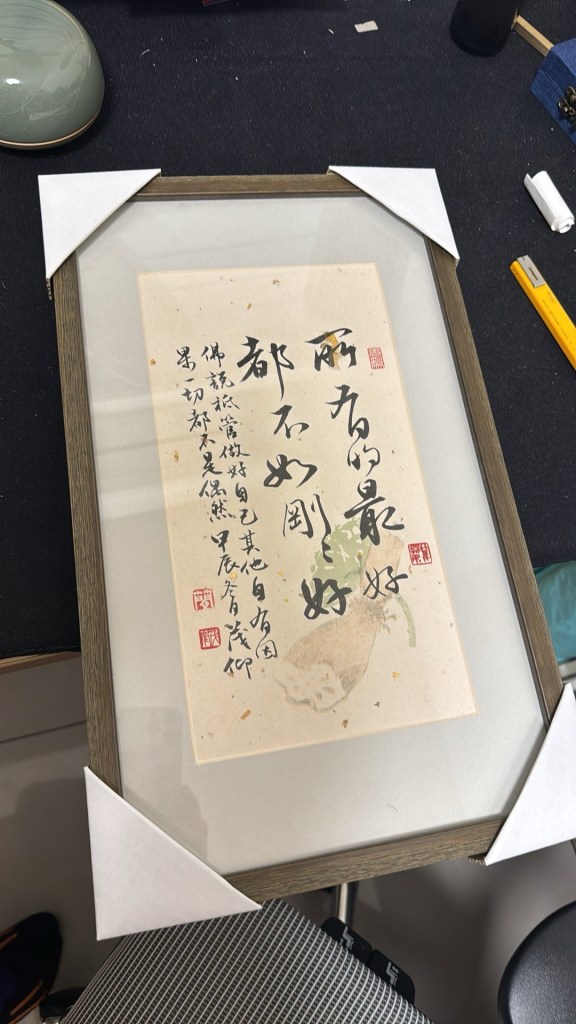 所有的最好
都不如剛〻好
佛説祗管做好自己其他自有因
果一切都不是偶然 甲辰冬月茂仰